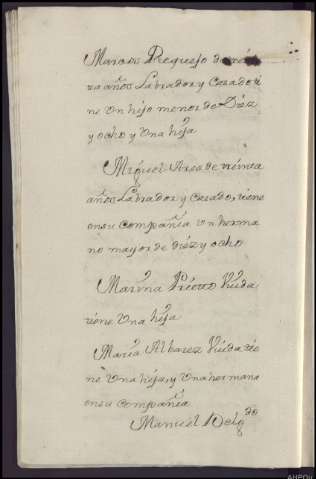 Marcos Requejo de
ra años Labrador y Casado ti
ne Un hijo menor de Diez
y ocho y Una hija
Miguel Area de treinta
años Labrador y Casado, tiene
en su Compañia Un herma
no mayor de diez y ocho
Marina Prieto Viuda
tiene Una hija
Maria Albarez Viuda tie
ne Una hija, y Una hermana
en su Compañia
Manuel Delgdo
AHPOu